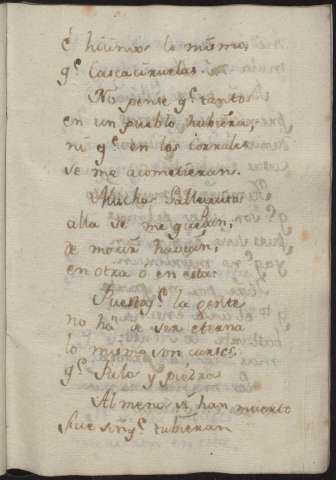 é hicimos lo mismo,
q.e Cascaciruelas.
No pense q.e tantos
en un pueblo hubiera,
ni q.e en los corrales
se me acometieran.
Muchos
alla se me quedan,
de morir havian,
en otra ó en esta.
Puesto q.e la gente
no ha de ser eterna
lo mismo son
q.e Palo y piedra
Al menos si han muerto
fue sin q.e tubieran